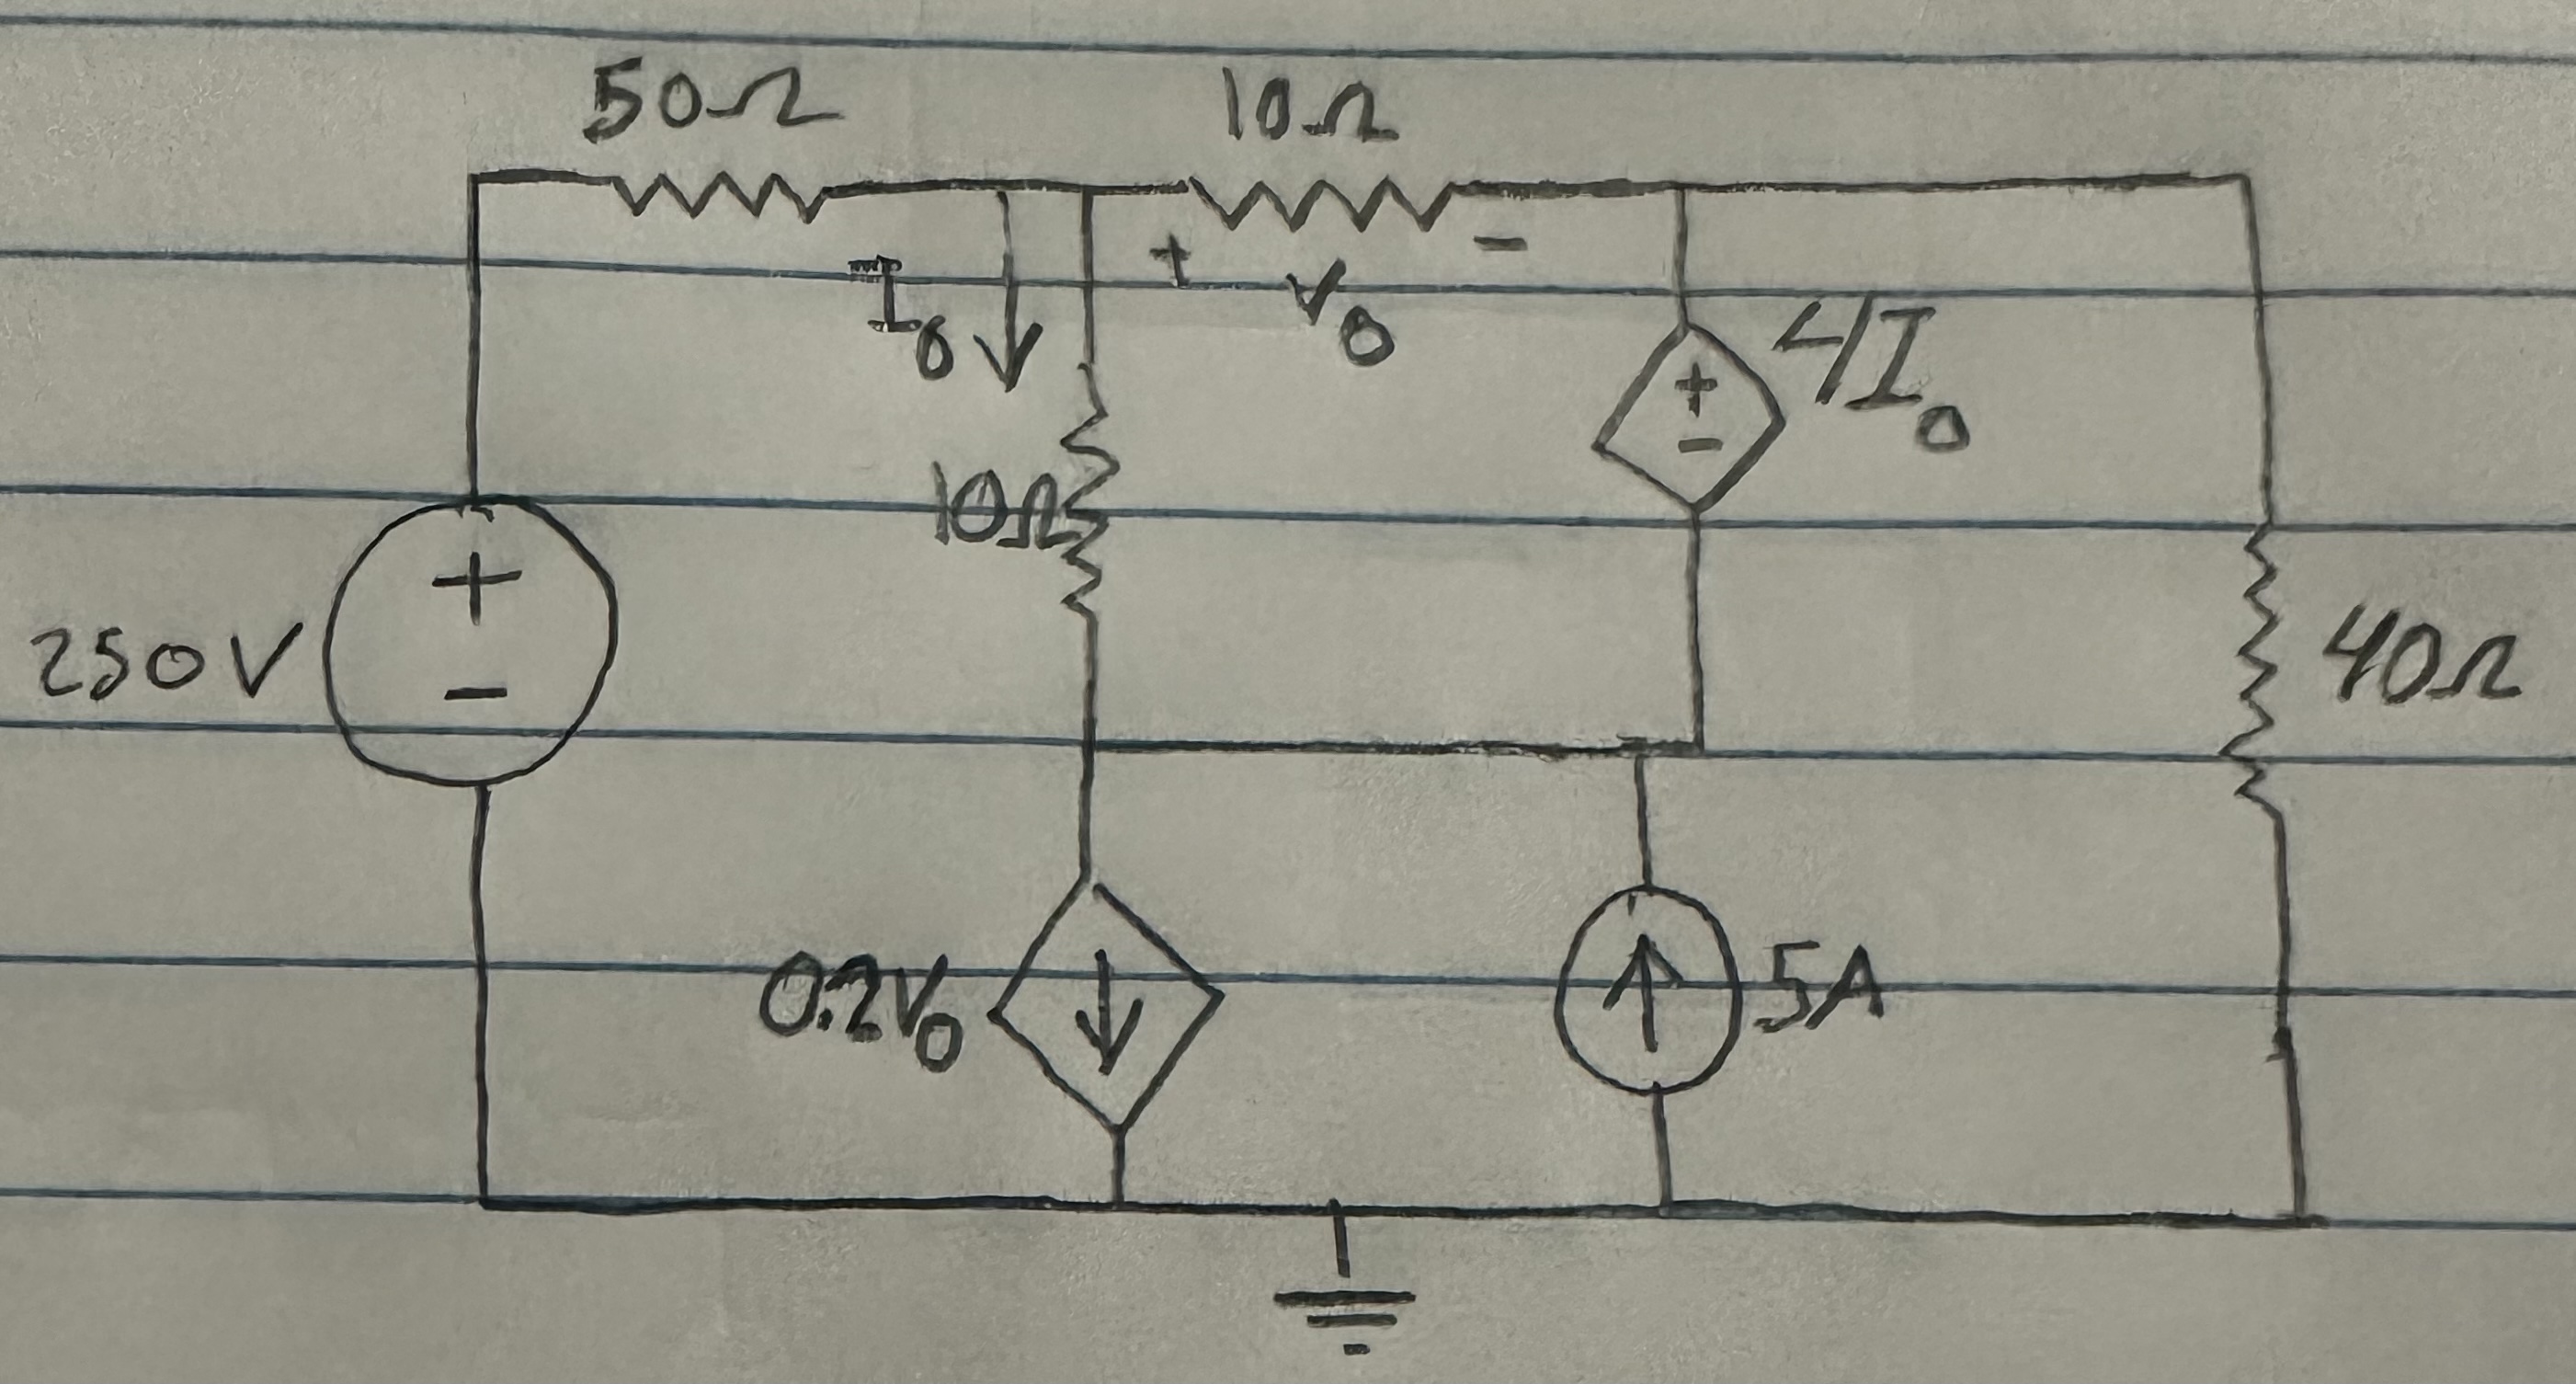 50Ω 10Ω
I₀ + V₀ -
+ - 4I₀
10Ω
250V + - 40Ω
0.2V₀ 5A